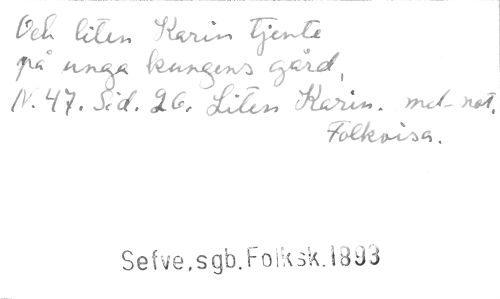 Och liten Karin tjente
på unga kungens gård,
N. 47. Sid. 26. Liten Karin. med not.
Folkvisa.
Sefve, sgb. Folksk. 1893